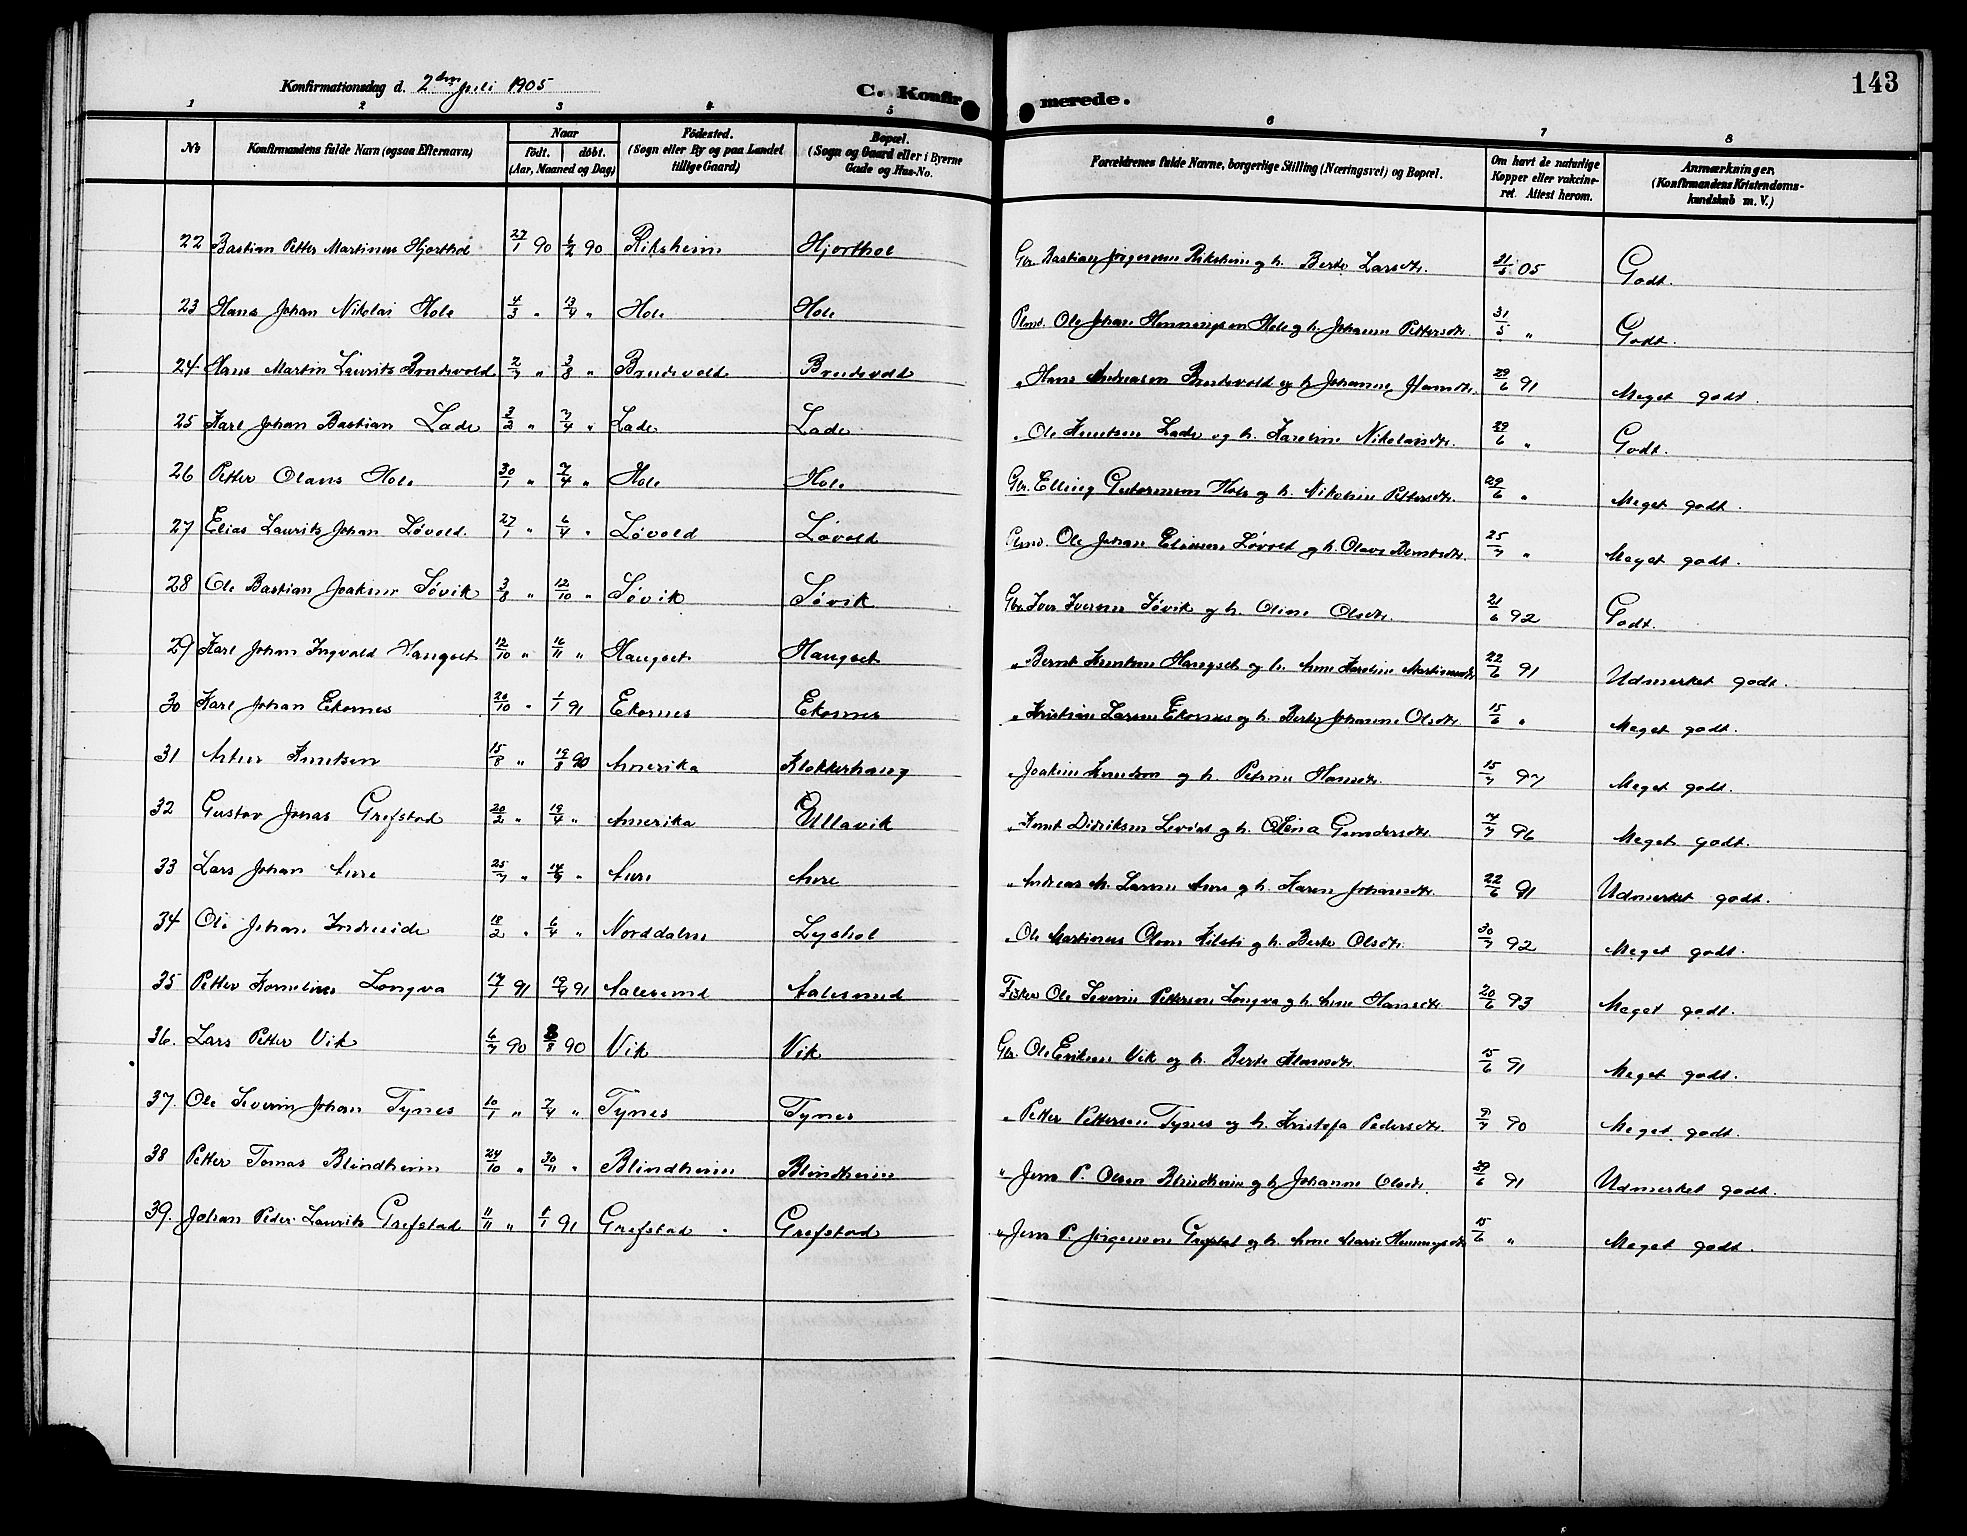 143
Konfirmationsdag d. 2den Juli 1905
C. Konfirmerede.
1 2 3 4 5 6 7 8
No
Konfirmandens fulde Navn (ogsaa Efternavn)
Naar
født. døbt.
(Aar, Maaned og Dag)
Fødested.
(Sogn eller By og paa Landet tillige Gaard)
Bopæl.
(Sogn og Gaard eller i Byerne Gade og Hus-No.
Forældrenes fulde Navne, borgerlige Stilling (Næringsvei) og Bopæl.
Om havt de naturlige Kopper eller vakcineret. Attest herom.
Anmærkninger.
(Konfirmandens Kristendomskundskab m. V.)
22 Bastian Petter Martinus Hjorthol 27/1 90 6/2 90 Riksheim Hjorthol Gbr. Bastian Jørgensen Riksheim og h. Berte Larsdtr. 31/5 05 Godt.
23 Hans Johan Nikolai Hole 4/3 " 13/4 " Hole Hole Plmd. Ole Johan Henningsen Hole og h. Johanne Pettersdtr. 31/5 " Godt.
24 Hans Martin Laurits Brudevold 2/7 " 3/8 " Brudevold Brudevold " Hans Andreasen Brudevold og h. Johanne 29/6 91 Meget godt.
25 Karl Johan Bastian Lade 3/2 " 7/4 " Lade Lade " Ole Knutsen Lade og h. Karoline Nikolaidtr. 29/6 " Godt.
26 Petter Olaus Hole 30/1 " 7/4 " Hole Hole Gbr. Elling Guttormsen Hole og h. Nikoline Pettersdtr. 29/6 " Meget godt.
27 Elias Laurits Johan Løvold 27/1 " 6/4 " Løvold Løvold Plmd. Ole Johan Eliassen Løvold og h. Olave Berntsdtr. 25/7 " Meget godt.
28 Ole Bastian Joakim Søvik 3/8 " 12/10 " Søvik Søvik Gbr. Iver Iversen Søvik og h. Oline Olsdtr. 21/6 92 Godt.
29 Karl Johan Ingvald Haugset 12/10 " 16/11 " Haugset Haugset " Bernt Knutsen Haugset og h. Anne Karoline Martinusdtr 22/6 91 Udmerket godt.
30 Karl Johan Ekornes 20/10 " 1/1 91 Ekornes Ekornes " Kristian Larsen Ekornes og h. Berte Johanne Olsdtr. 15/6 " Meget godt.
31 Artur Knutsen 15/8 " 19/8 90 Amerika Klokkerhaug " Joakim Knudsen og h. Petrine Hansdtr. 15/7 97 Meget godt.
32 Gustav Jonas Grefstad 20/2 " 19/4 " Amerika Ullavik " Knut Didriksen og h. Olena Gundersdtr. 7/7 96 Meget godt.
33 Lars Johan Aure 25/7 " 14/9 " Aure Aure " Andreas M. Larsen Aure og h. Karen Johansdtr. 22/6 91 Udmerket godt.
34 Ole Johan Indreeide 18/2 " 6/4 " Norddalen Lyshol " Ole Martinus Olsen Kilsti og h. Berte Olsdtr. 30/7 92 Meget godt.
35 Petter Kornelius Longva 17/1 91 19/4 91 Aalesund Aalesund Fisker Ole Severin Pettersen Longva og h. Anne Hansdtr. 20/6 93 Meget godt.
36. Lars Petter Vik 6/7 90 3/8 90 Vik Vik Gbr. Ole Eriksen Vik og h. Berte Klausdtr. 15/6 91 Meget godt.
37. Ole Severin Johan Tynes 10/1 " 7/4 " Tynes Tynes " Petter Pettersen Tynes og h. Kristofa Pedersdtr. 9/7 90 Meget godt.
38 Petter Tomas Blindheim 24/10 " 30/11 " Blindheim Blindheim " Jens P. Olsen Blindheim og h. Johanne Olsdtr. 29/6 91 Udmerket godt.
39. Johan Peder Laurits Grefstad 11/11 " 1/1 91 Grefstad Grefstad " Jens P. Jørgensen Grefstad og h. Anne Marie Henningsdtr 15/6 " Meget godt.